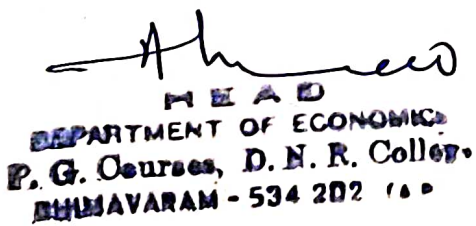 HEAD
DEPARTMENT OF ECONOMIC
P. G. Courses, D. N. R. Colleg.
BHIMAVARAM - 534 202